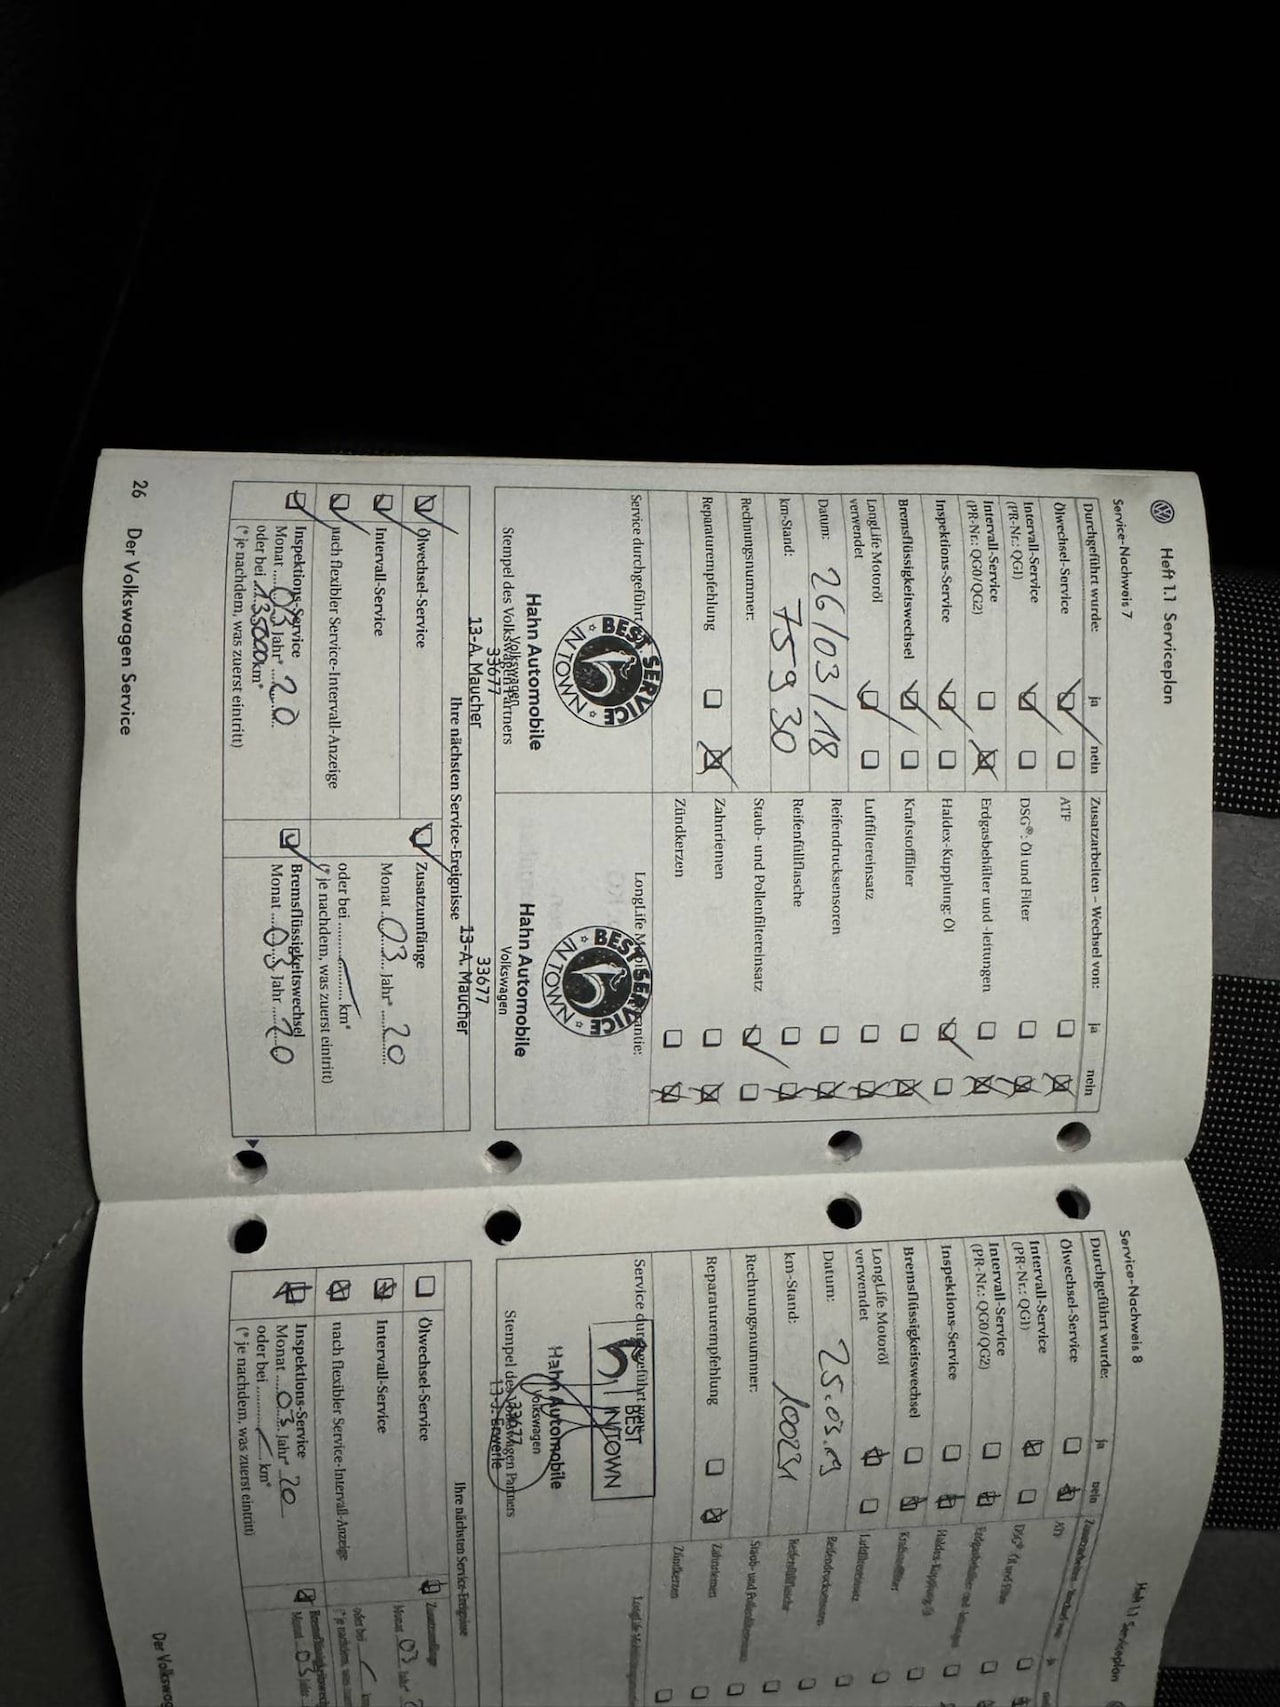 Heft 1.1 Serviceplan
Service-Nachweis 7
Durchgeführt wurde: ja nein
Ölwechsel-Service
Intervall-Service
(PR-Nr.: QG1)
Intervall-Service
(PR-Nr.: QG0/QG2)
Inspektions-Service
Bremsflüssigkeitswechsel
LongLife Motoröl
verwendet
Datum: 26/03/18
km-Stand: 75930
Rechnungsnummer:
Reparaturempfehlung
Zusatzarbeiten – Wechsel von: ja nein
ATF
DSG®: Öl und Filter
Erdgasbehälter und -leitungen
Haldex-Kupplung: Öl
Kraftstofffilter
Luftfiltereinsatz
Reifendrucksensoren
Reifenfüllflasche
Staub- und Pollenfiltereinsatz
Zahnriemen
Zündkerzen
Service durchgeführt
BEST SERVICE
IN TOWN
Hahn Automobile
Volkswagen
Stempel des Volkswagen Partners
33677
13-A. Maucher
LongLife
BEST SERVICE
IN TOWN
Hahn Automobile
Volkswagen
33677
13-A. Maucher
Ihre nächsten Service-Ereignisse
Ölwechsel-Service
Intervall-Service
nach flexibler Service-Intervall-Anzeige
Inspektions-Service
Monat 03 Jahr* 20
oder bei 135000 km*
(* je nachdem, was zuerst eintritt)
Zusatzumfänge
Monat 03 Jahr* 20
oder bei km*
(* je nachdem, was zuerst eintritt)
Bremsflüssigkeitswechsel
Monat 03 Jahr 20
26 Der Volkswagen Service
Heft 1.1 Serviceplan
Service-Nachweis 8
Durchgeführt wurde: ja nein
Ölwechsel-Service
Intervall-Service
(PR-Nr.: QG1)
Intervall-Service
(PR-Nr.: QG0/QG2)
Inspektions-Service
Bremsflüssigkeitswechsel
LongLife Motoröl
verwendet
Datum: 25.03.19
km-Stand: 100231
Rechnungsnummer:
Reparaturempfehlung
ATF
DSG®: Öl und Filter
Erdgasbehälter und -leitungen
Haldex-Kupplung: Öl
Kraftstofffilter
Luftfiltereinsatz
Reifendrucksensoren
Reifenfüllflasche
Staub- und Pollenfiltereinsatz
Zahnriemen
Zündkerzen
Service durchgeführt
BEST
IN TOWN
Hahn Automobile
Volkswagen
Stempel des Volkswagen Partners
33677
Ihre nächsten Service-Ereignisse
Ölwechsel-Service
Intervall-Service
nach flexibler Service-Intervall-Anzeige
Inspektions-Service
Monat 03 Jahr* 20
oder bei km*
(* je nachdem, was zuerst eintritt)
Zusatzumfänge
Monat 03 Jahr*
oder bei
(* je nachdem, was
Bremsflüssigkeitswechsel
Monat 03 Jahr
Der Volkswag